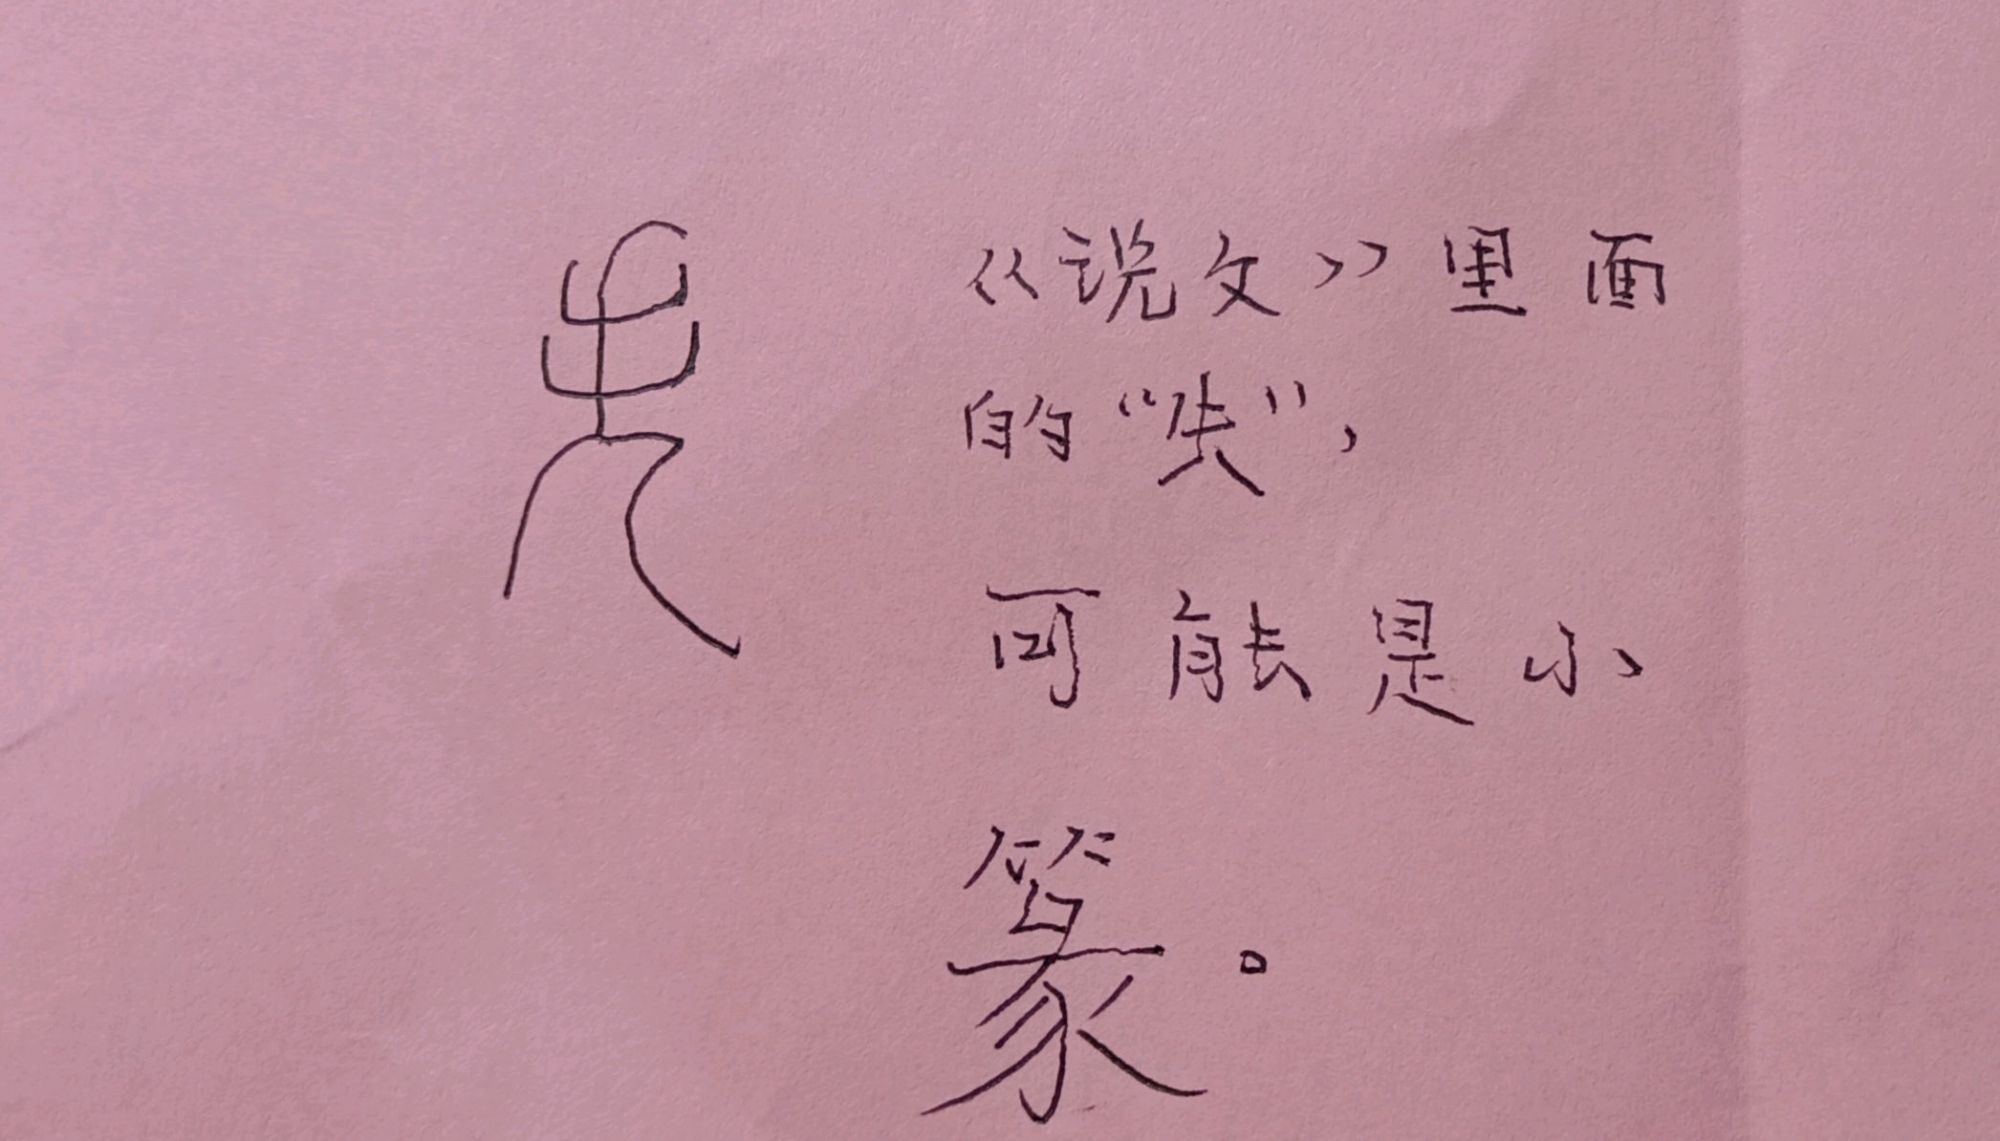 《说文》里面
的“失”，
可能是小
篆。